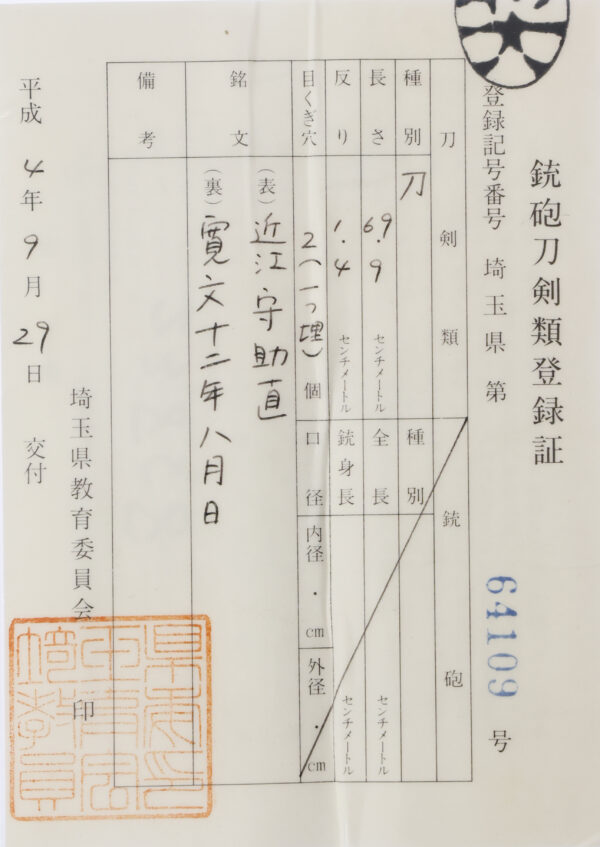 銃砲刀剣類登録証
登録記号番号 埼玉県 第 64109 号
刀剣類
銃砲
種別 刀
種別
長さ 69.9 センチメートル
全長 センチメートル
反り 1.4 センチメートル
銃身長 センチメートル
目くぎ穴 2(一つ埋) 個
口径 内径 ・ cm 外径 ・ cm
銘文 (表) 近江守助直
(裏) 寛文十二年八月日
備考
埼玉県教育委員会 印
平成 4年 9月 29日 交付